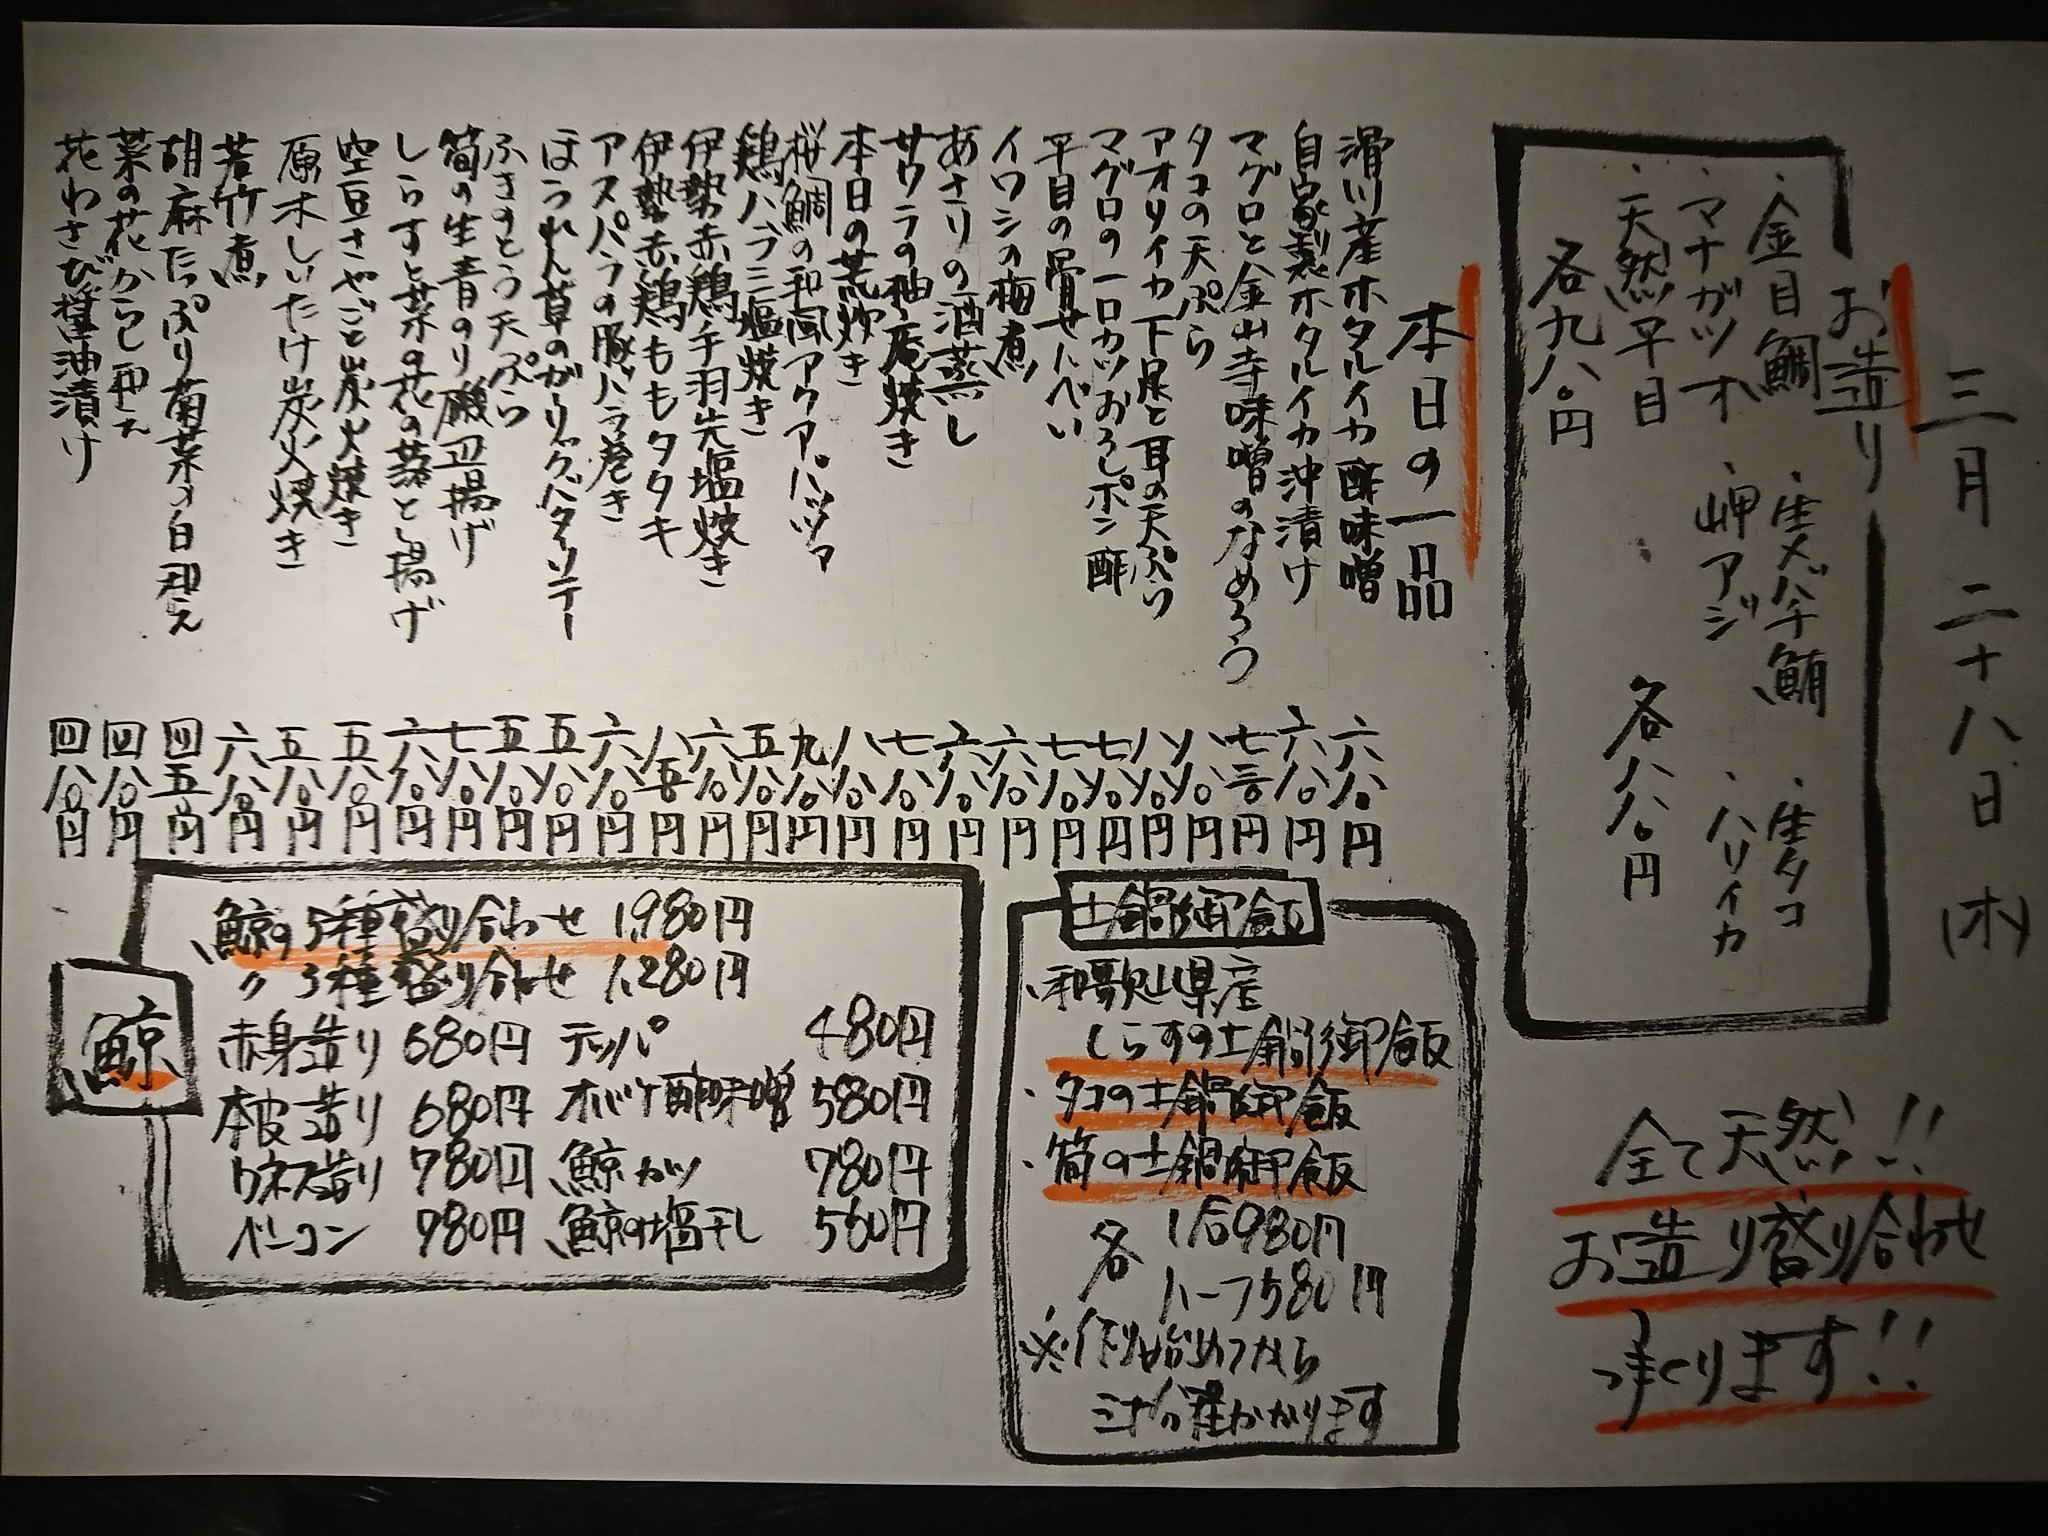 三月二十八日(木)
お造り
・金目鯛
・生メバチ鮪
・生タコ
・マナガツオ
・岬アジ
・ハリイカ
・天然平目
各九八〇円
各八八〇円
全て天然!!
お造り盛り合わせ
承ります!!
本日の一品
滑川産ホタルイカ酢味噌 六八〇円
自家製ホタルイカ沖漬け 六八〇円
マグロと金山寺味噌のなめろう 七三〇円
タコの天ぷら 八八〇円
アオリイカ下足と耳の天ぷら 八八〇円
マグロの一口カツおろしポン酢 七八〇円
平目の骨せんべい 七八〇円
イワシの梅煮 六八〇円
あさりの酒蒸し 六八〇円
サワラの柚庵焼き 七八〇円
本日の荒炊き 八八〇円
桜鯛の和風アクアパッツァ 九八〇円
鶏ハラミ塩焼き 五八〇円
伊勢赤鶏手羽先塩焼き 六八〇円
伊勢赤鶏ももタタキ 八五〇円
アスパラの豚バラ巻き 六八〇円
ほうれん草のガーリックバターソテー 五八〇円
ふきのとう天ぷら 五八〇円
筍の生青のり磯辺揚げ 七八〇円
しらすと菜の花の落とし揚げ 六八〇円
空豆さやごと炭火焼き 五八〇円
原木しいたけ炭火焼き 五八〇円
若竹煮 六八〇円
胡麻たっぷり菊菜の白和え 四五〇円
菜の花からし和え 四八〇円
花わさび醤油漬け 四八〇円
土鍋御飯
・和歌山県産
しらすの土鍋御飯
・タコの土鍋御飯
・筍の土鍋御飯
各 1合980円
ハーフ580円
※作り始めてから
三十分程かかります
鯨
鯨の5種盛り合わせ 1,980円
〃 3種盛り合わせ 1,280円
赤身造り 680円 テッパ 480円
本皮造り 680円 オバケ酢味噌 580円
ウネス造り 780円 鯨カツ 780円
ベーコン 980円 鯨の塩干し 560円